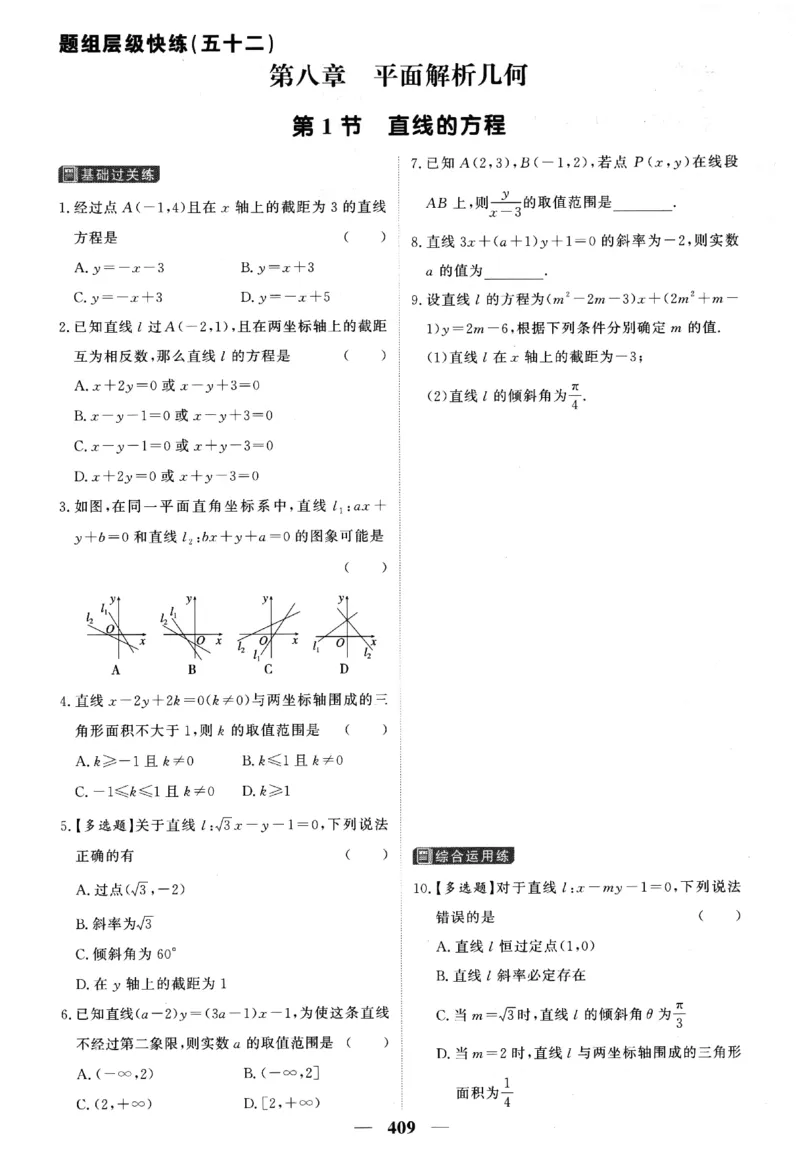 题组层级快练(五十二)
第八章　平面解析几何
第1节　直线的方程
基础过关练
1.经过点 A(-1,4)且在 x 轴上的截距为 3 的直线
方程是 (　　)
A.y=-x-3　　B.y=x+3
C.y=-x+3　　D.y=-x+5
2.已知直线 l 过A(-2,1),且在两坐标轴上的截距
互为相反数,那么直线 l 的方程是 (　　)
A.x+2y=0 或 x-y+3=0
B.x-y-1=0 或 x-y+3=0
C.x-y-1=0 或 x+y-3=0
D.x+2y=0 或 x+y-3=0
3.如图,在同一平面直角坐标系中,直线 l₁:ax+
y+b=0 和直线 l₂:bx+y+a=0 的图象可能是
(　　)
y l₁ l₂ O x　y l₁ l₂ O x　y O x l₂ l₁　y O x l₁ l₂
A　B　C　D
4.直线 x-2y+2k=0(k≠0)与两坐标轴围成的三
角形面积不大于 1,则 k 的取值范围是 (　　)
A.k≥-1 且 k≠0　　B.k≤1 且 k≠0
C.-1≤k≤1 且 k≠0　D.k≥1
5.【多选题】关于直线 l:√3x-y-1=0,下列说法
正确的有 (　　)
A.过点(√3,-2)
B.斜率为√3
C.倾斜角为 60°
D.在 y 轴上的截距为 1
6.已知直线(a-2)y=(3a-1)x-1,为使这条直线
不经过第二象限,则实数 a 的取值范围是 (　　)
A.(-∞,2)　　B.(-∞,2]
C.(2,+∞)　　D.[2,+∞)
7.已知 A(2,3),B(-1,2),若点 P(x,y)在线段
AB 上,则y/(x-3)的取值范围是______.
8.直线 3x+(a+1)y+1=0 的斜率为-2,则实数
a 的值为______.
9.设直线 l 的方程为(m²-2m-3)x+(2m²+m-
1)y=2m-6,根据下列条件分别确定 m 的值.
(1)直线 l 在 x 轴上的截距为-3;
(2)直线 l 的倾斜角为π/4.
综合运用练
10.【多选题】对于直线 l:x-my-1=0,下列说法
错误的是 (　　)
A.直线 l 恒过定点(1,0)
B.直线 l 斜率必定存在
C.当 m=√3时,直线 l 的倾斜角θ为π/3
D.当 m=2 时,直线 l 与两坐标轴围成的三角形
面积为1/4
— 409 —